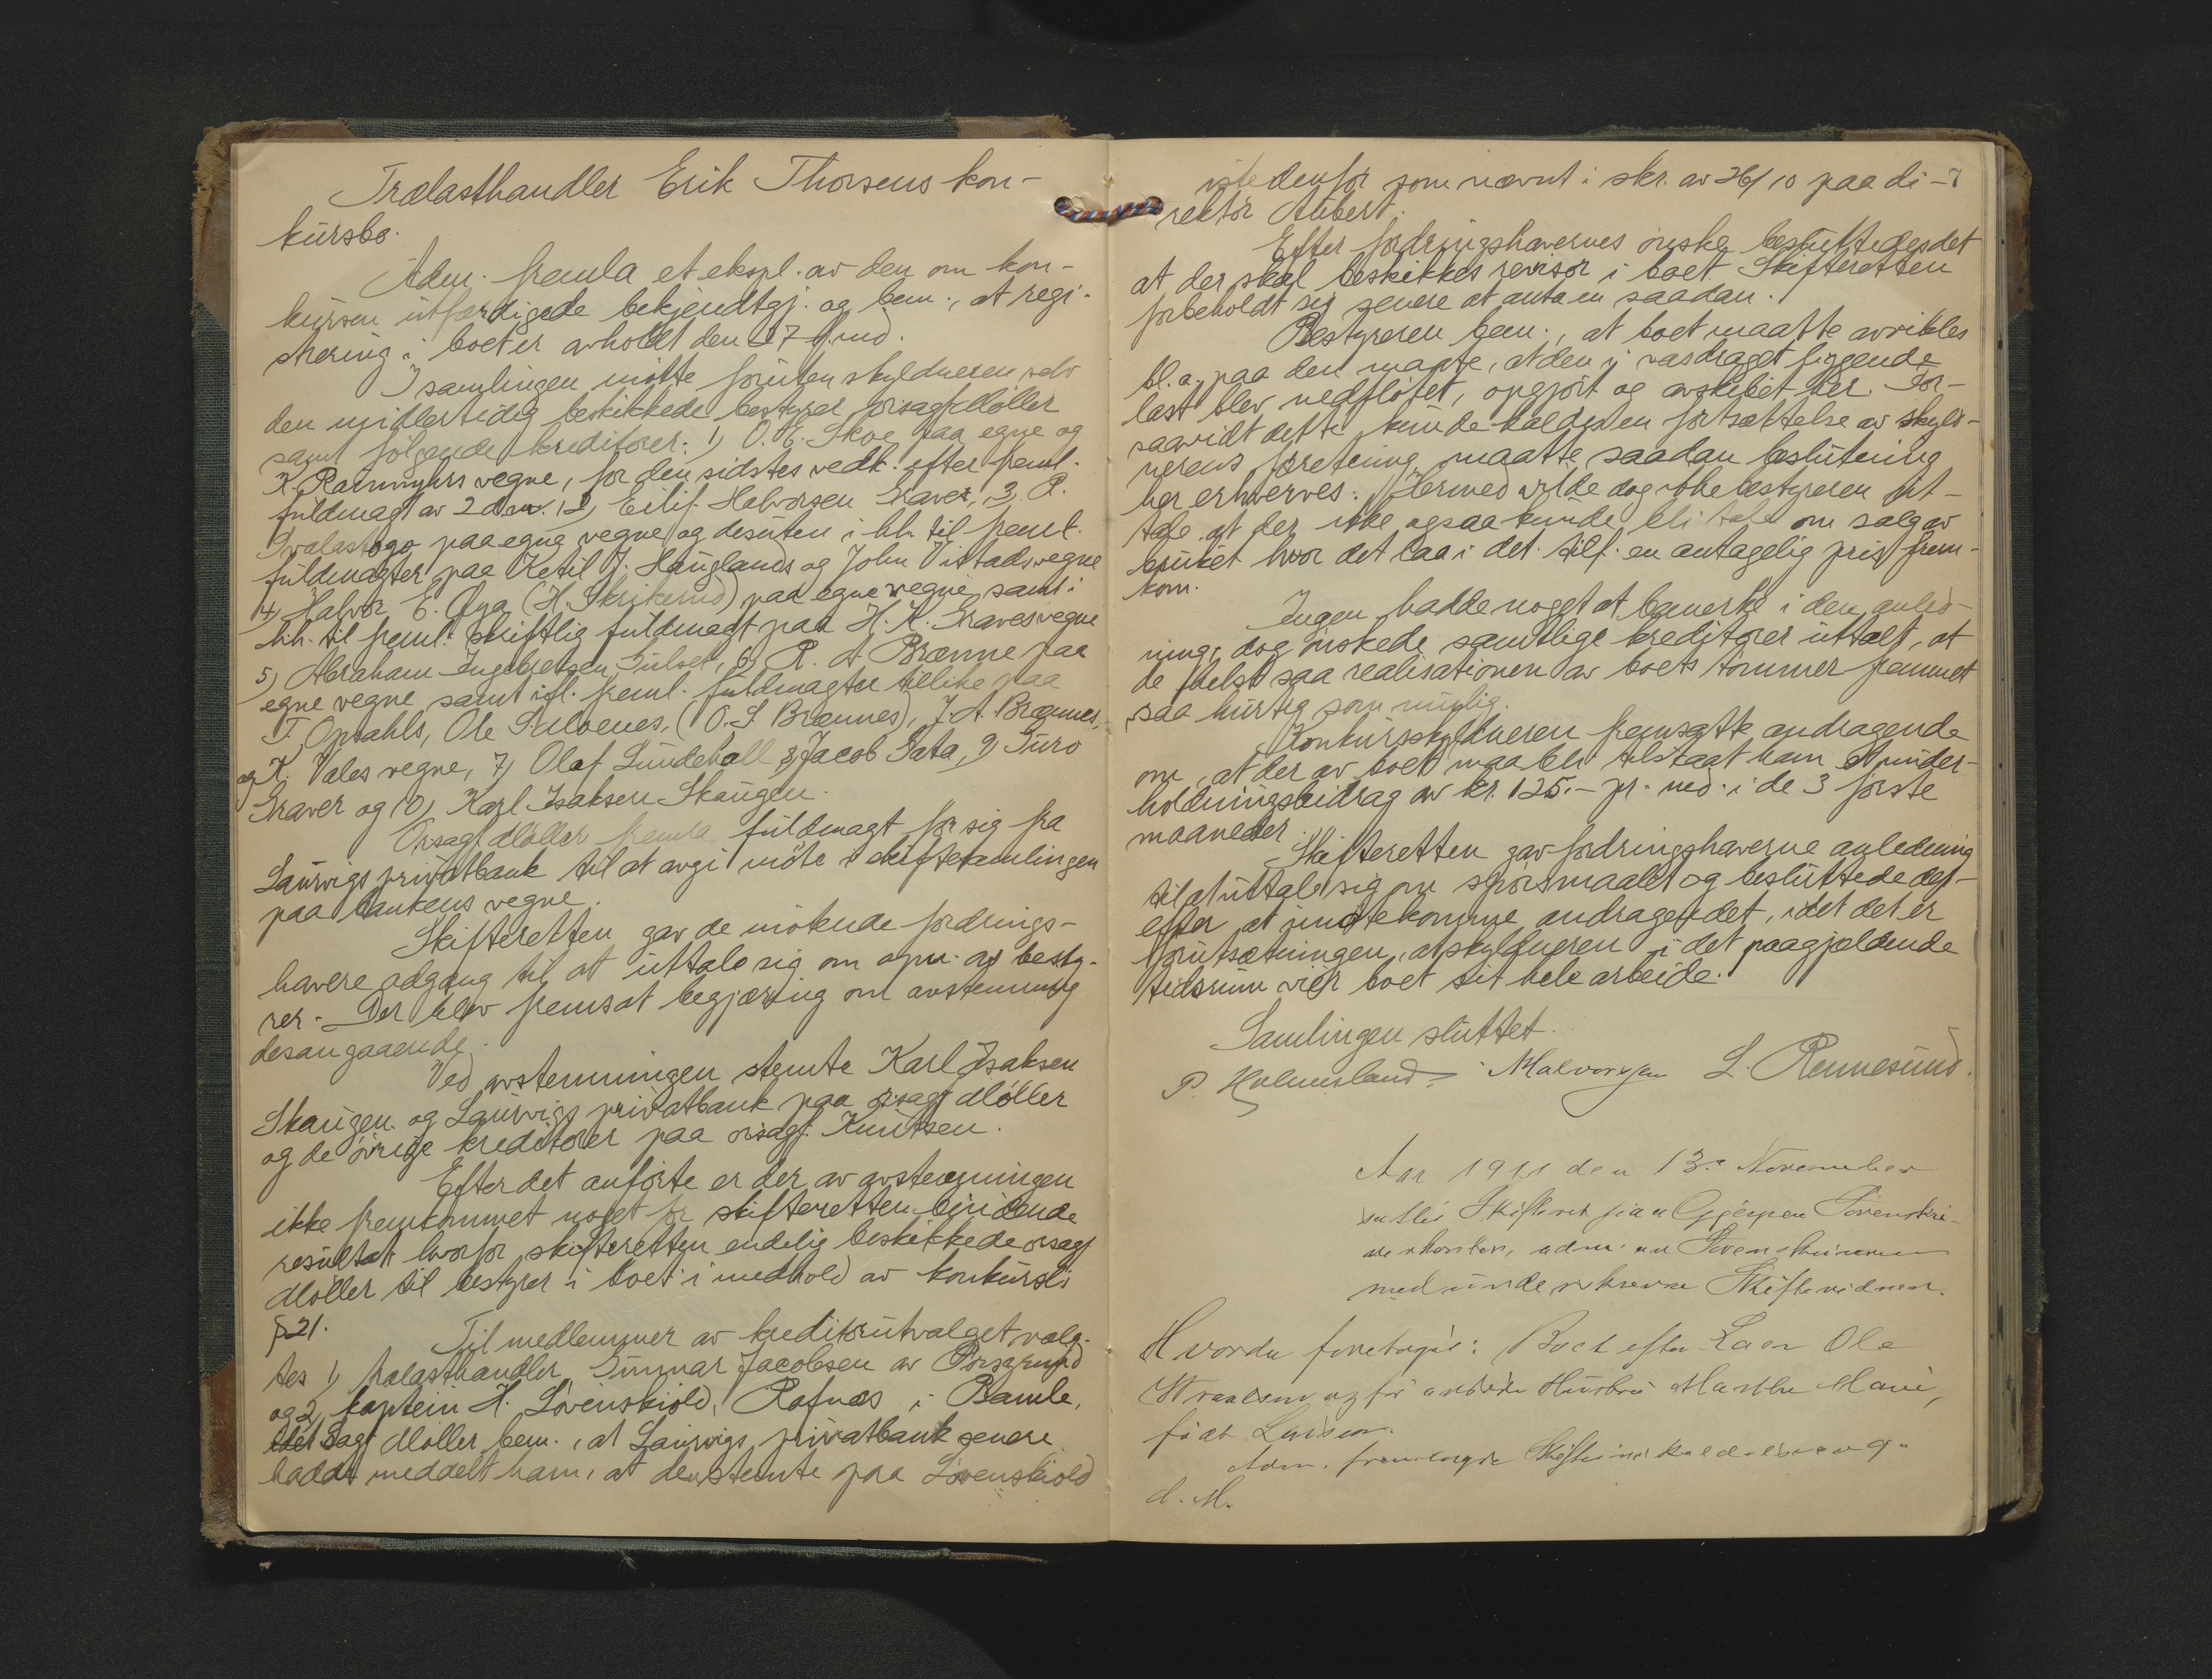 Trælasthandler Erik Thorsens kon-
kursbo.
Adm. fremla et ekspl. av den om kon-
kursen utfærdigede bekjendtgj. og bem., at regi-
strering i boet er avholdt den 27 f. md.
I samlingen møtte foruten skyldneren selv
den midlertidig beskikkede bestyrer orsagf Møller
samt følgende kreditorer: 1) O. E. Skoe paa egne og
K. vegne, for den sidstes vedk. efter freml.
fuldmagt av 2 dennes. 2) Eilif Halvorsen Graver, 3. R.
paa egne vegne og desuten i hh. til freml.
fuldmagter paa Ketil J. Hauglands og John Vistads vegne
4) Halvor E. Øya (H. Skrikerud) paa egne vegne, samt i
h.h. til freml. skriftlig fuldmagt paa H. A. Graves vegne
5) Abraham Ingebretsen Gulset, 6) R. A. Brænne paa
egne vegne samt ifl. freml. fuldmagter tillike paa
T. Opsahls, Ole (O. S. Brænnes), J. A. Brænnes,
og K. Vales vegne, 7) Olaf Lundeholl 8) Jacob Sata, 9) Turo
Graver og 10) Karl Isaksen Skaugen.
Orsagf Møller fremla fuldmagt for sig fra
Laurvigs privatbank til at avgi møte i skiftesamlingen
paa bankens vegne.
Skifteretten gav de møtende fordrings-
havere adgang til at uttale sig om opn. av besty-
rer. Der blev fremsat begjæring om avstemning
desangaaende.
Ved avstemningen stemte Karl Isaksen
Skaugen og Laurvigs privatbank paa orsagf Møller
og de øvrige kreditorer paa orsagf. Knutsen.
Efter det anførte er der av avstemningen
ikke fremkommet noget for skifteretten bindende
resultat hvorfor skifteretten endelig beskikkede orsagf
Møller til bestyrer i boet i medhold av konkursl's
§ 21.
Til medlemmer av kreditorutvalget valg-
tes 1) trælasthandler Gunnar Jacobsen av Porsgrund
og 2, kaptein H. Løvenskiold, Rafnæs i Bamle,
idet Sagf Møller bem., at Laurvigs privatbank senere
hadde meddelt ham, at den stemte paa Løvenskiold
istedenfor som nævnt i skr. av 26/10 paa di-
rektør Aubert.
Efter fordringshavernes ønske besluttedes det
at der skal beskikkes revisor i boet. Skifteretten
forbeholdt sig senere at anta en saadan.
Bestyreren bem., at boet maatte avvikles
bl. a. paa den maate, at den i vasdraget liggende
last blev nedfløtet, opgjort og avskibet her. For-
saavidt dette kunde kaldes en fortsættelse av skyld-
nerens forretning, maatte saadan beslutning
her erhverves. Hermed vilde dog ikke bestyreren ut-
tale at der ikke ogsaa kunde bli tale om salg av
bruket hvor det laa i det tilf. en antagelig pris frem-
kom.
Ingen hadde noget at bemerke i den anled-
ning, dog ønskede samtlige kreditorer uttalt, at
de helst saa realisationen av boets tømmer fremmet
saa hurtig som mulig.
Konkursskyldneren fremsatte andragende
om, at der av boet maa bli tilstaat ham et under-
holdningsbidrag av kr. 125.- pr. md. i de 3 første
maaneder.
Skifteretten gav fordringshaverne anledning
til at uttale sig om spørsmaalet og besluttede der-
efter at imøtekomme andragendet, idet det er
forutsætningen, at skyldneren i det paagjældende
tidsrum vier boet sit hele arbeide.
Samlingen sluttet.
P. Holmesland. Halvorsen L. Rennesund.
Aar 1911 den 13de November
sattes Skifteret paa Gjerpen Sorenskri-
verkontor, adm. av Sorenskriveren
med underskrevne Skiftevidner.
Hvorda foretoges: Boet efter
og hustru Marthe Marie,
født Larsen.
Adm. fremlagde
d. M.